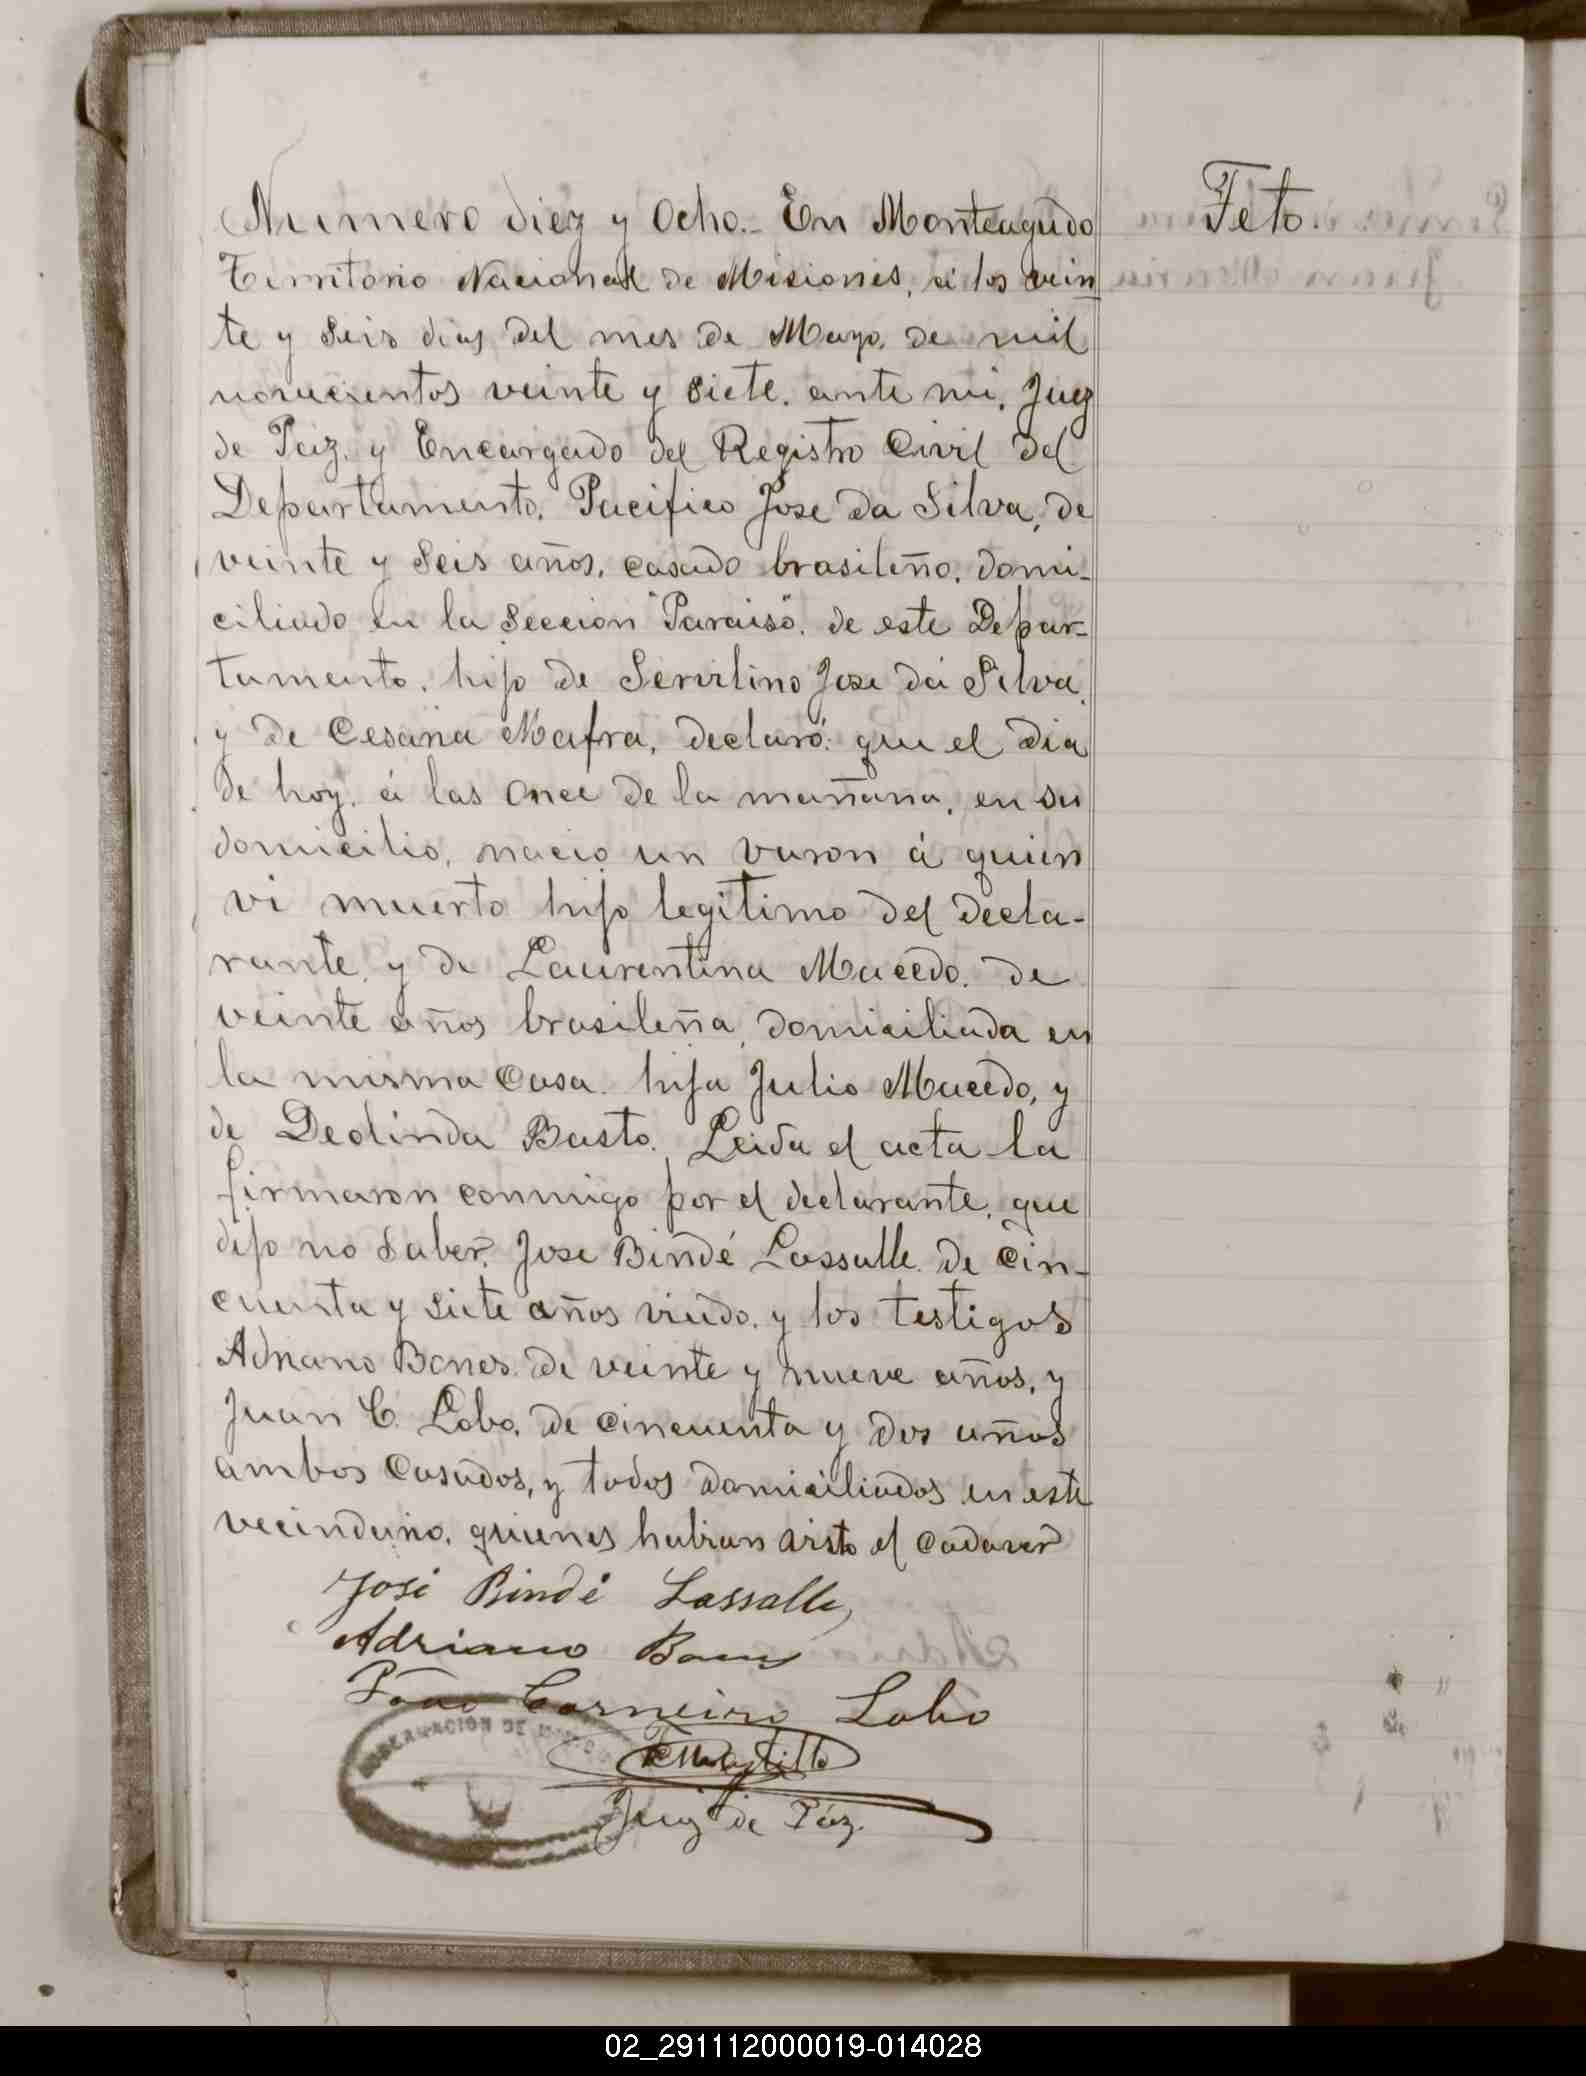 Numero diez y Ocho.- En Monteagudo
Territorio Nacional de Misiones, á los vein
te y seis dias del mes de Mayo, de mil
novecientos veinte y siete. ante mi, Juez
de Paz, y Encargado del Registro Civil del
Departamento, Pacifico Jose da Silva, de
veinte y seis años, casado brasileño, domi-
ciliado en la seccion "Paraiso", de este Depar-
tamento, hijo de Servilino Jose da Silva,
y de Cesaria Mafra, declaró: que el dia
de hoy, á las once de la mañana, en su
domicilio, nacio un varon á quien
vi muerto hijo legitimo del decla-
rante, y de Laurentina Macedo, de
veinte años brasileña, domiciliada en
la misma casa. hija Julio Macedo, y
de Deolinda Basto. Leida el acta la
firmaron conmigo por el declarante, que
dijo no saber, Jose Bindé Lassalle de cin-
cuenta y siete años viudo, y los testigos
Adriano Bones de veinte y nueve años, y
Juan C. Lobo, de cincuenta y dos años
ambos casados, y todos domiciliados en este
vecindario, quienes habian visto el cadaver
José Bindé Lassalle
Adriano Bones
João Carneiro Lobo
GOBERNACION DE
Juez de Paz.
Feto.
02_291112000019-014028